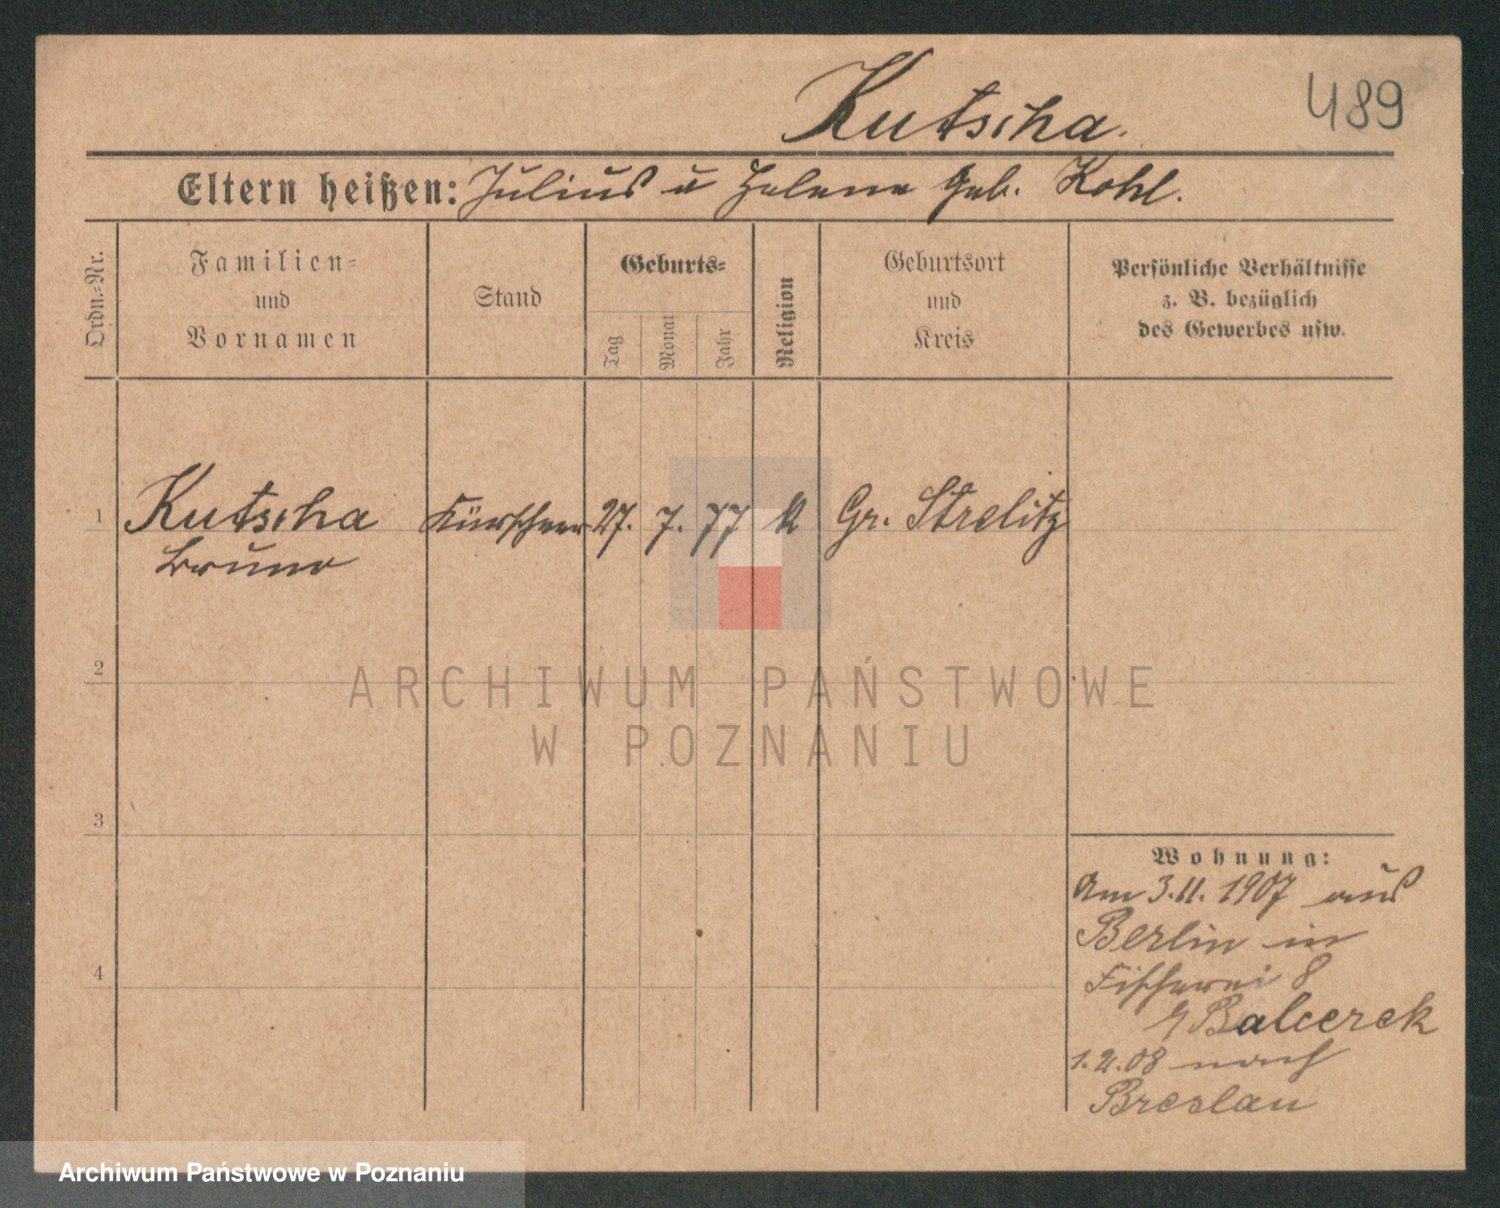 Kutscha.
489
Eltern heißen: Julius u Helene geb. Kohl.
Ordn.-Nr.
Familien-
und
Vornamen
Stand
Geburts-
Tag
Monat
Jahr
Religion
Geburtsort
und
Kreis
Persönliche Verhältnisse
z. B. bezüglich
des Gewerbes usw.
1 Kutscha Kürschner 27. 7. 77 k Gr. Strelitz
Bruno
2
ARCHIWUM PAŃSTWOWE
W POZNANIU
3
4
Wohnung:
Am 3.11.1907 aus
Berlin in
Fischerei 8
Balcerek
1.2.08 nach
Breslau
Archiwum Państwowe w Poznaniu